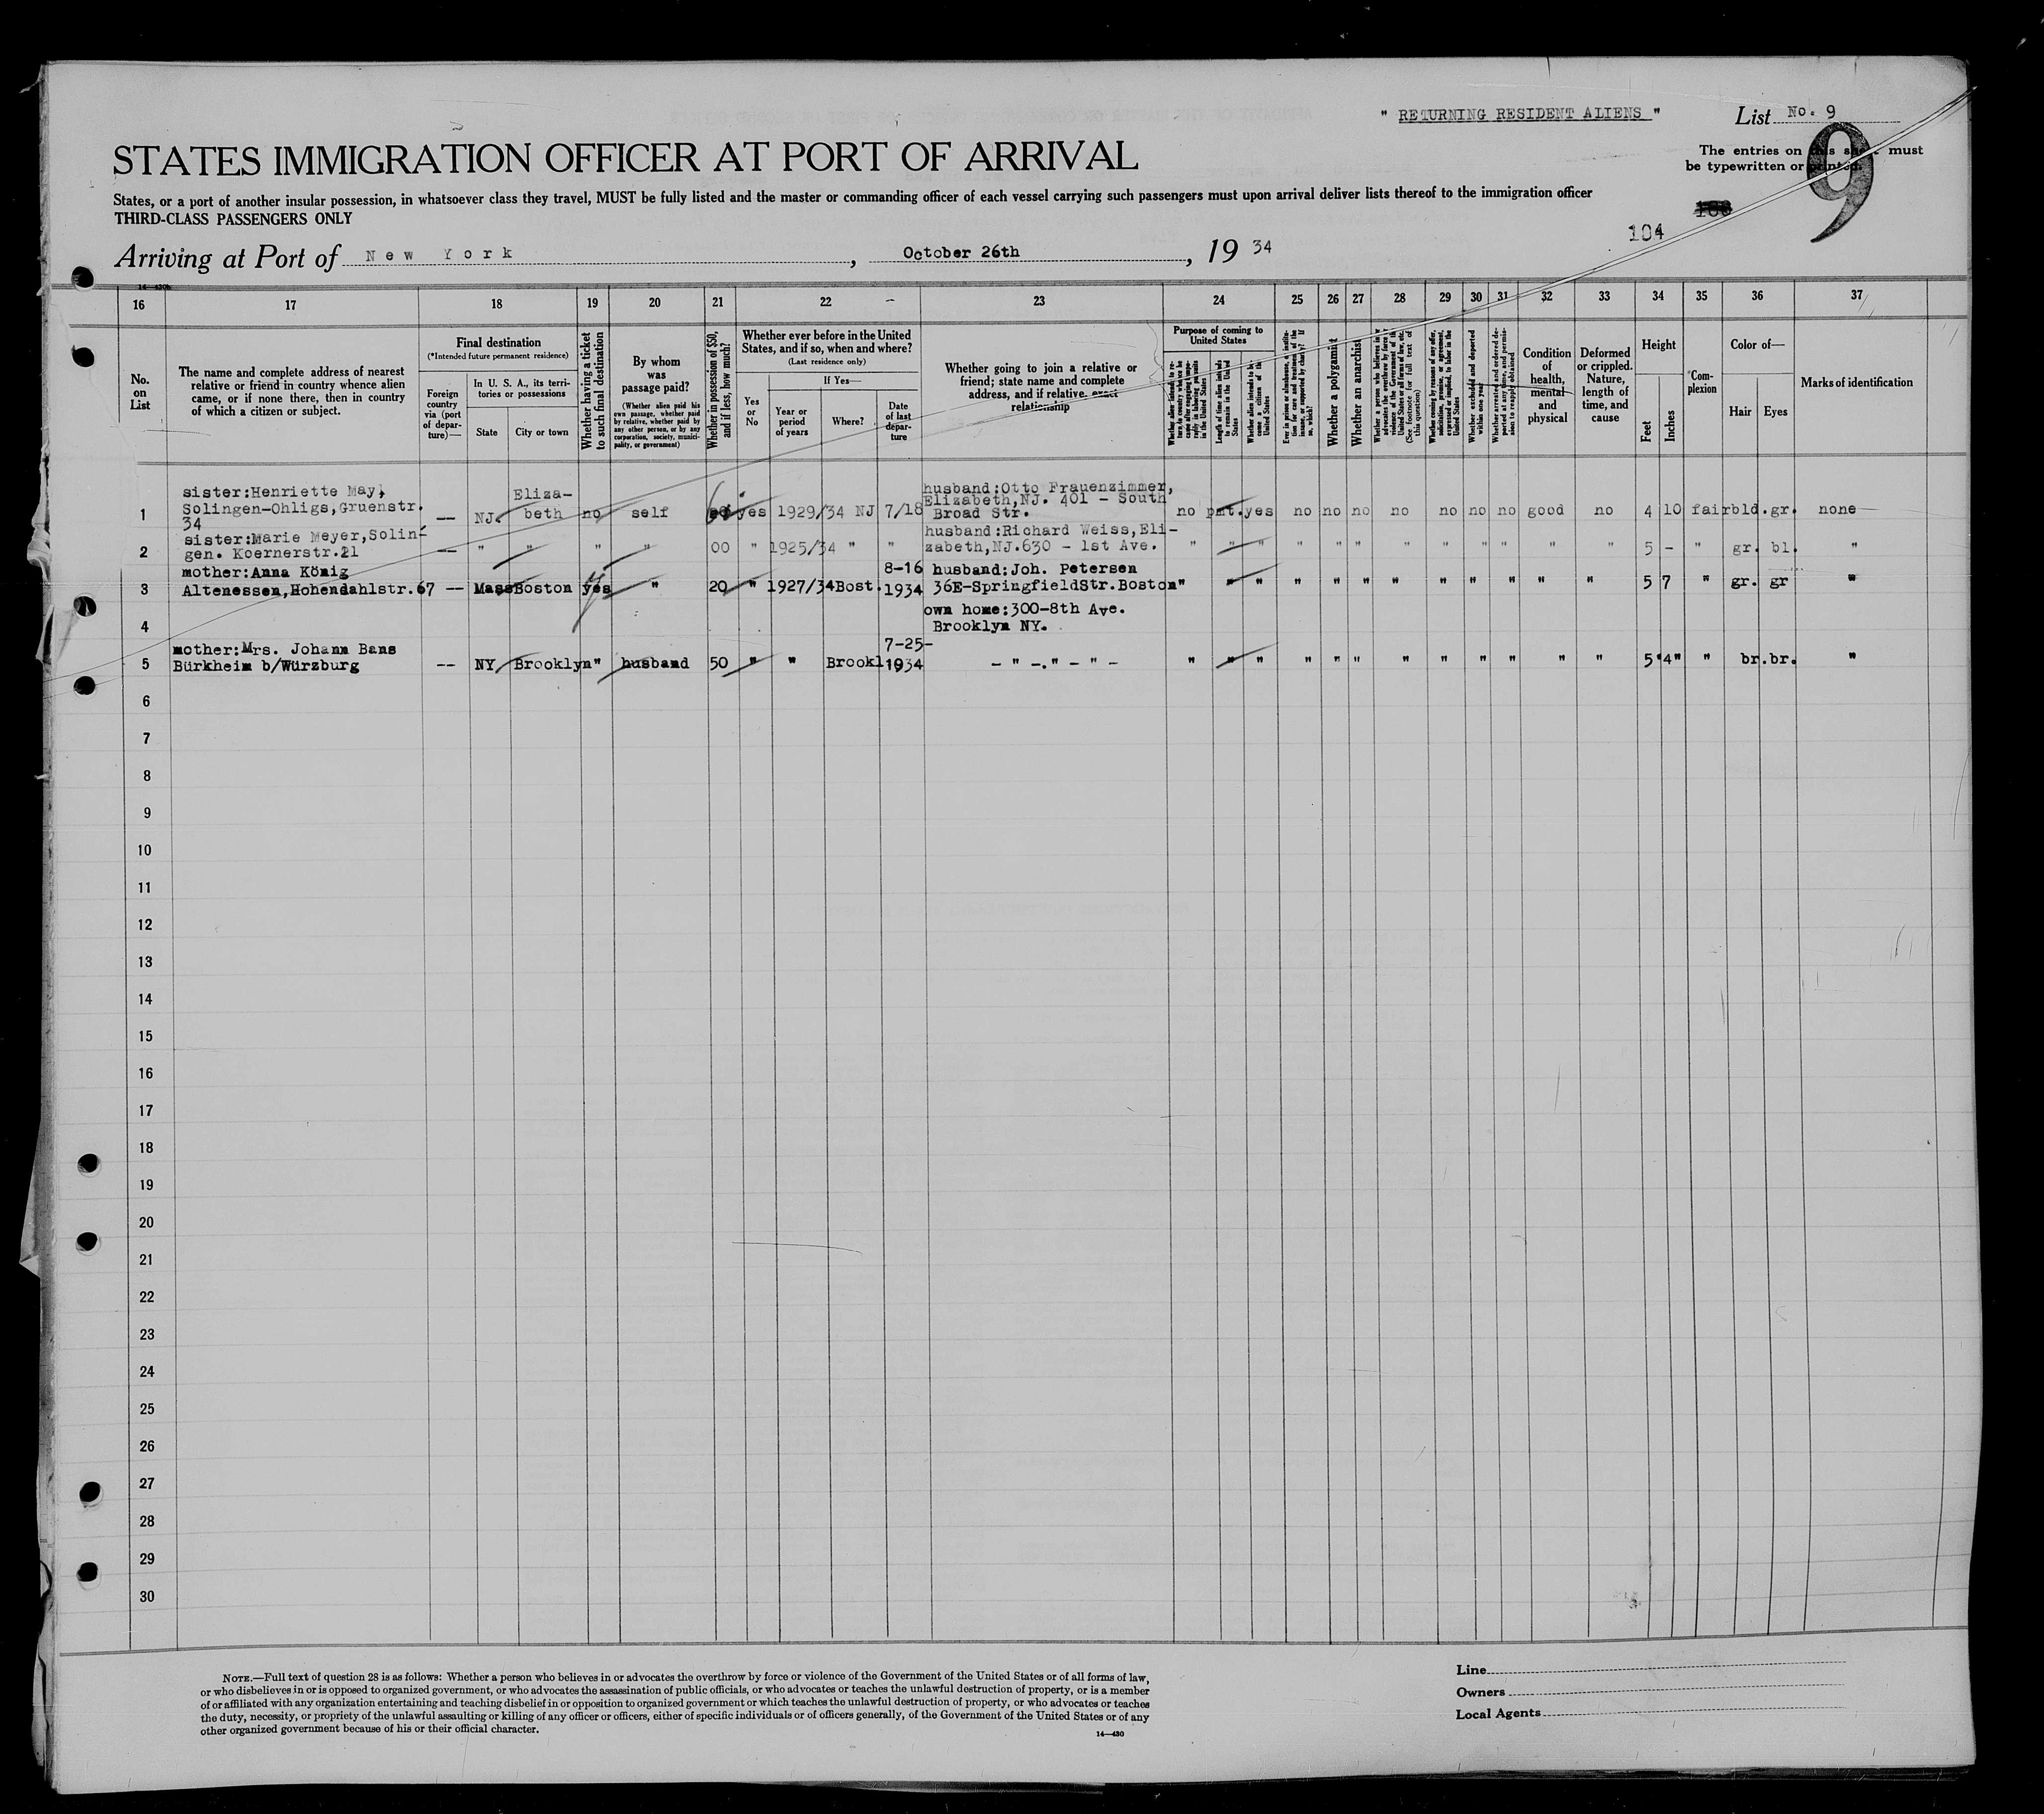 " RETURNING RESIDENT ALIENS "
List No. 9
9
STATES IMMIGRATION OFFICER AT PORT OF ARRIVAL
The entries on this sheet must
be typewritten or printed.
States, or a port of another insular possession, in whatsoever class they travel, MUST be fully listed and the master or commanding officer of each vessel carrying such passengers must upon arrival deliver lists thereof to the immigration officer
THIRD-CLASS PASSENGERS ONLY
104
Arriving at Port of New York, October 26th, 19 34
16 17 18 19 20 21 22 23 24 25 26 27 28 29 30 31 32 33 34 35 36 37
No. on List
The name and complete address of nearest
relative or friend in country whence alien
came, or if none there, then in country
of which a citizen or subject.
Final destination
(*Intended future permanent residence)
Foreign country via (port of departure)—
In U. S. A., its territories or possessions
State
City or town
Whether having a ticket to such final destination
By whom was passage paid?
(Whether alien paid his own passage, whether paid by relative, whether paid by any other person, or by any corporation, society, municipality, or government)
Whether in possession of $50, and if less, how much?
Whether ever before in the United
States, and if so, when and where?
(Last residence only)
Yes or No
If Yes—
Year or period of years
Where?
Date of last departure
Whether going to join a relative or
friend; state name and complete
address, and if relative, exact
relationship
Purpose of coming to United States
Whether a polygamist
Whether an anarchist
Condition of health, mental and physical
Deformed or crippled. Nature, length of time, and cause
Height
Feet
Inches
Complexion
Color of—
Hair
Eyes
Marks of identification
sister:Henriette May, Eliza- husband:Otto Frauenzimmer,
Solingen-Ohligs,Gruenstr. Elizabeth,NJ. 401 - South
1 34 — NJ. beth no self yes 1929/34 NJ 7/18 Broad Str. no pmt. yes no no no no no no no good no 4 10 fair bld. gr. none
sister:Marie Meyer,Solin- husband:Richard Weiss,Eli-
2 gen. Koernerstr.21 — " " " " 00 " 1925/34 " " zabeth,NJ.630 - 1st Ave. " " " " " " " " " " " " 5 - " gr. bl. "
mother:Anna König 8-16 husband:Joh. Petersen
3 Altenessen,Hohendahlstr.67 — Mass Boston yes " 20 " 1927/34 Bost. 1934 36E-SpringfieldStr.Boston " " " " " " " " " " " " 5 7 " gr. gr "
own home:300-8th Ave.
4 Brooklyn NY.
mother:Mrs. Johann Bans 7-25-
5 Bürkheim b/Würzburg — NY. Brooklyn " husband 50 " " Brookl. 1934 - " -." - " - " " " " " " " " " " " " 5' 4" " br. br. "
6
7
8
9
10
11
12
13
14
15
16
17
18
19
20
21
22
23
24
25
26
27
28
29
30
NOTE.—Full text of question 28 is as follows: Whether a person who believes in or advocates the overthrow by force or violence of the Government of the United States or of all forms of law,
or who disbelieves in or is opposed to organized government, or who advocates the assassination of public officials, or who advocates or teaches the unlawful destruction of property, or is a member
of or affiliated with any organization entertaining and teaching disbelief in or opposition to organized government or which teaches the unlawful destruction of property, or who advocates or teaches
the duty, necessity, or propriety of the unlawful assaulting or killing of any officer or officers, either of specific individuals or of officers generally, of the Government of the United States or of any
other organized government because of his or their official character.
14—430
Line
Owners
Local Agents